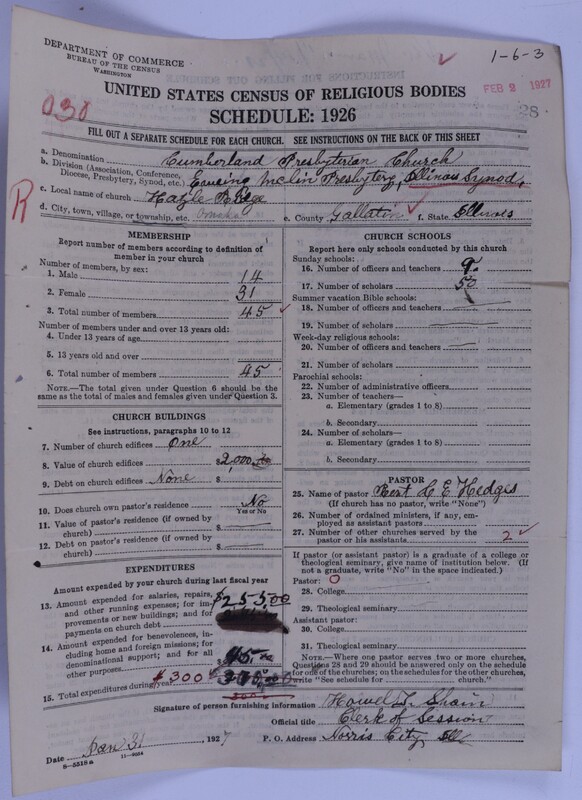 DEPARTMENT OF COMMERCE
BUREAU OF THE CENSUS
WASHINGTON
1-6-3
FEB 2 1927
28
030
UNITED STATES CENSUS OF RELIGIOUS BODIES
SCHEDULE: 1926
FILL OUT A SEPARATE SCHEDULE FOR EACH CHURCH. SEE INSTRUCTIONS ON THE BACK OF THIS SHEET
a. Denomination Cumberland Presbyterian Church
b. Division (Association, Conference, Diocese, Presbytery, Synod, etc.) Ewing Mclin Presbytery, Illinois Synod,
R
c. Local name of church Hazle Ridge
d. City, town, village, or township, etc. Omaha e. County Gallatin f. State Illinois
MEMBERSHIP
Report number of members according to definition of member in your church
Number of members, by sex:
1. Male 14
2. Female 31
3. Total number of members 45
Number of members under and over 13 years old:
4. Under 13 years of age
5. 13 years old and over
6. Total number of members 45
NOTE.—The total given under Question 6 should be the same as the total of males and females given under Question 3.
CHURCH BUILDINGS
See instructions, paragraphs 10 to 12
7. Number of church edifices One
8. Value of church edifices $2,000.00
9. Debt on church edifices None $
10. Does church own pastor's residence? No
Yes or No
11. Value of pastor's residence (if owned by church) $
12. Debt on pastor's residence (if owned by church) $
EXPENDITURES
Amount expended by your church during last fiscal year
13. Amount expended for salaries, repairs, and other running expenses; for improvements or new buildings; and for payments on church debt $255.00
14. Amount expended for benevolences, including home and foreign missions; for denominational support; and for all other purposes $45.00
15. Total expenditures during year $300
CHURCH SCHOOLS
Report here only schools conducted by this church
Sunday schools:
16. Number of officers and teachers 9
17. Number of scholars 50
Summer vacation Bible schools:
18. Number of officers and teachers
19. Number of scholars
Week-day religious schools:
20. Number of officers and teachers
21. Number of scholars
Parochial schools:
22. Number of administrative officers
23. Number of teachers—
a. Elementary (grades 1 to 8)
b. Secondary
24. Number of scholars—
a. Elementary (grades 1 to 8)
b. Secondary
PASTOR
25. Name of pastor L E Hedges
(If church has no pastor, write "None")
26. Number of ordained ministers, if any, employed as assistant pastors
27. Number of other churches served by the pastor or his assistants 2
If pastor (or assistant pastor) is a graduate of a college or theological seminary, give name of institution below. (If not a graduate, write "No" in the space indicated.)
Pastor: O
28. College
29. Theological seminary
Assistant pastor:
30. College
31. Theological seminary
NOTE.—Where one pastor serves two or more churches, Questions 28 and 29 should be answered only on the schedule for one of the churches; on the schedules for the other churches, write "See schedule for church."
Signature of person furnishing information Howel T. Shain
Official title Clerk of Session
Date Jan 31 1927 P. O. Address Norris City, Ill
8—5516a 11—9054